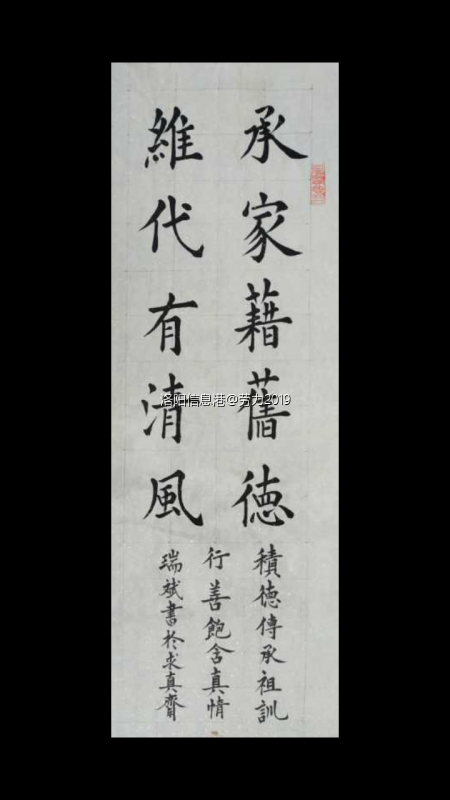 承家藉舊德
維代有清風
積德傳承祖訓
行善飽含真情
瑞斌書於求真齋
洛阳信息港@劳力2019